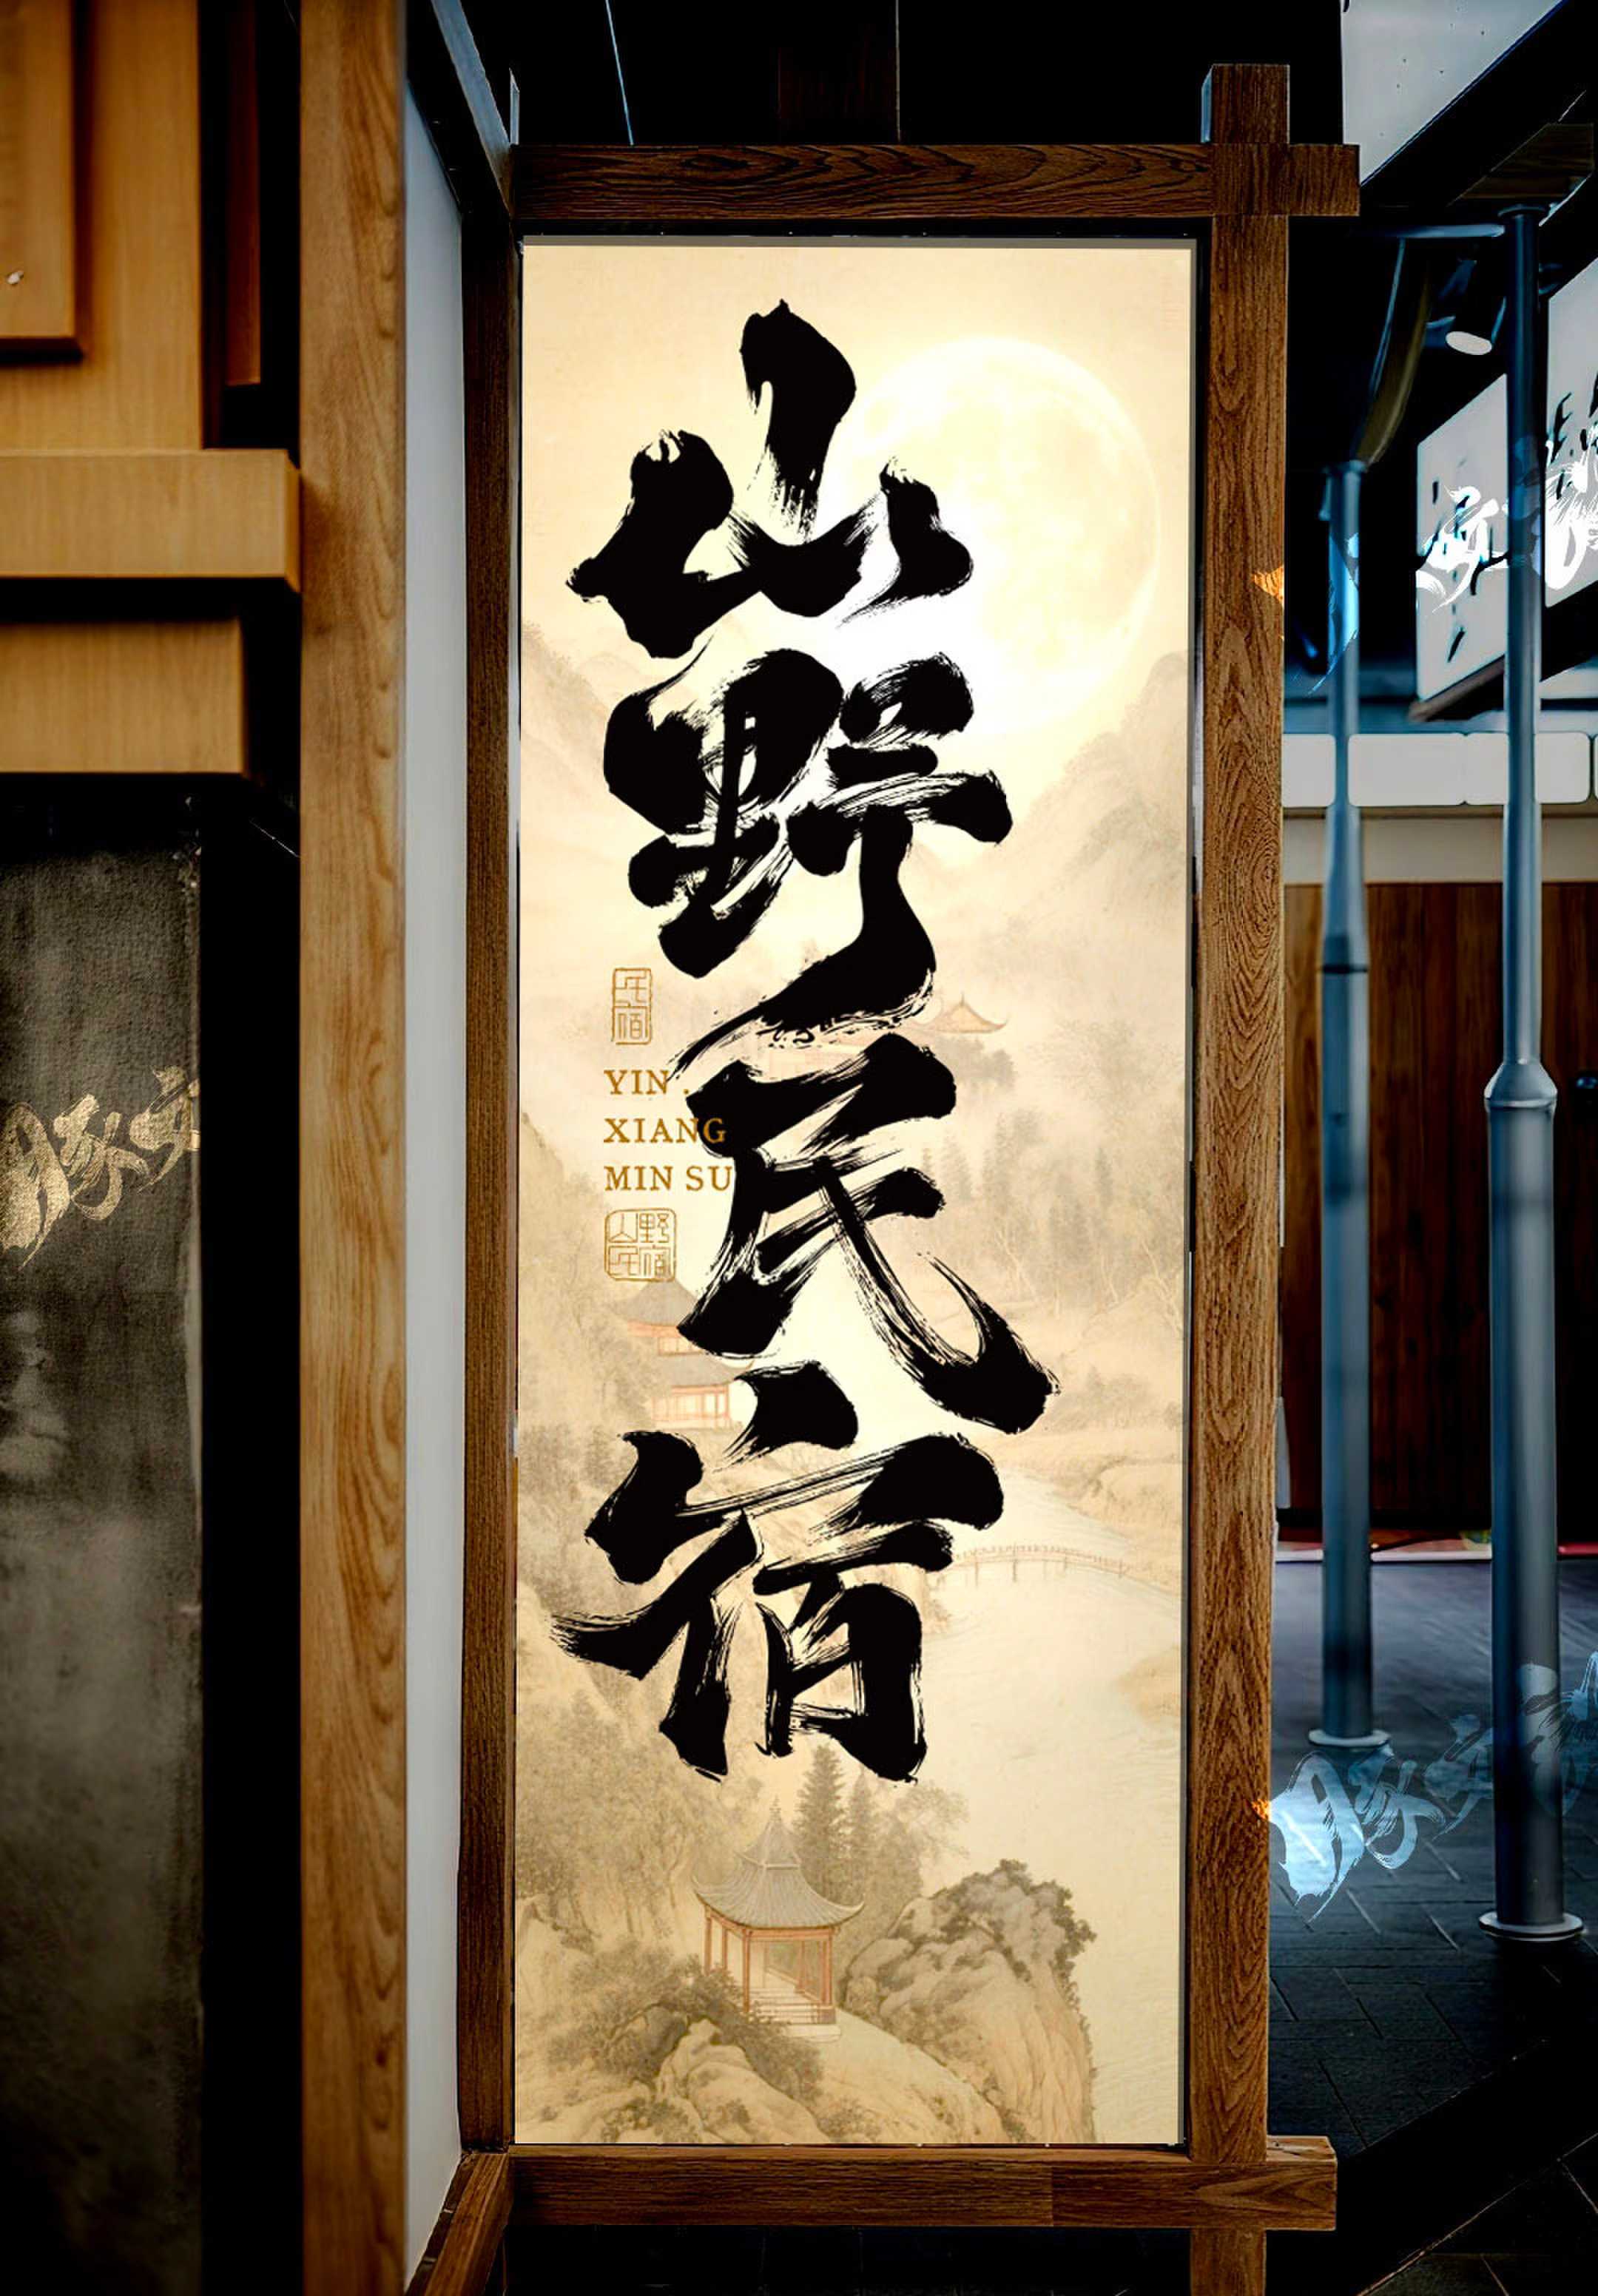 山野民宿
民宿
YIN .
XIANG
MIN SU
山野
民宿